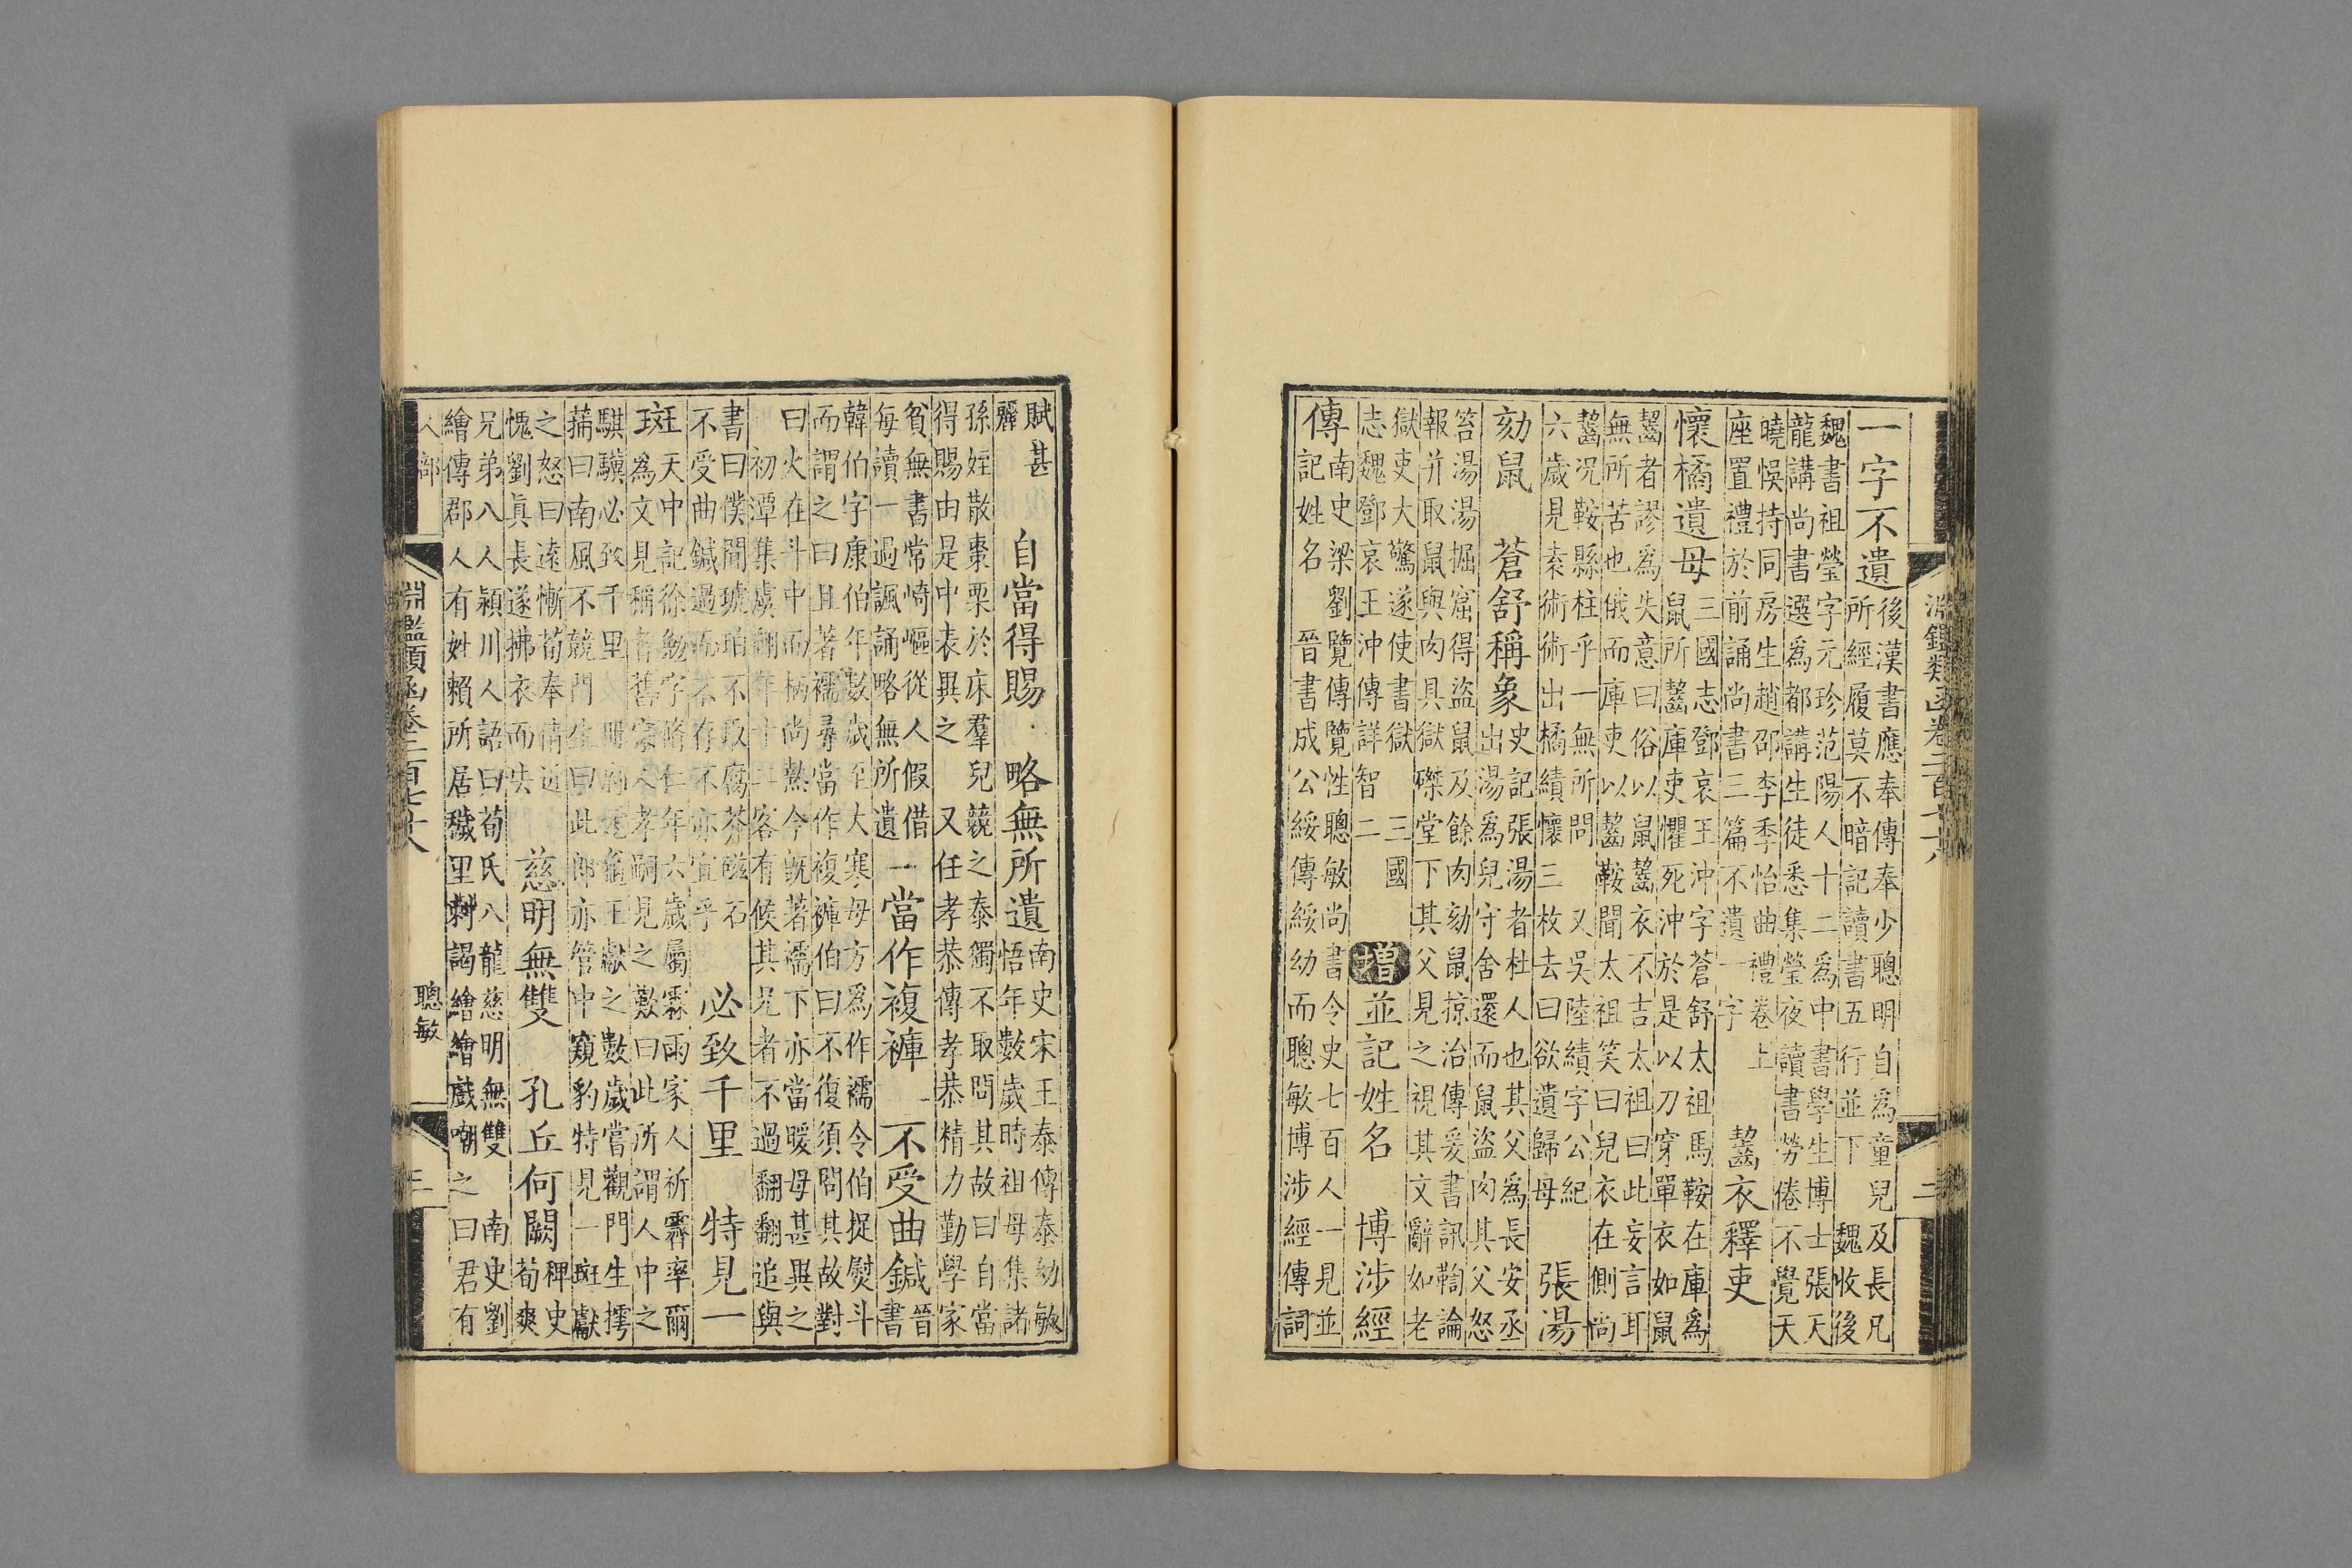 淵鑑類函卷二百七十六　二
一字不遺
後漢書應奉傳奉少聰明自爲童兒及長凡
所經履莫不暗記讀書五行並下　魏收後
魏書祖瑩字元珍范陽人十二爲中書學生博士張天
龍講尚書選爲都講生徒悉集瑩夜讀書勞倦不覺天
曉悞持同房生趙郡李季怡曲禮卷上
座置禮於前誦尚書三篇不遺一字
齧衣釋吏
懷橘遺母
三國志鄧哀王冲字蒼舒太祖馬鞍在庫爲
鼠所齧庫吏懼死冲於是以刀穿單衣如鼠
齧者謬爲失意曰俗以鼠齧衣不吉太祖曰此妄言耳
無所苦也俄而庫吏以齧鞍聞太祖笑曰兒衣在側尚
齧况鞍縣柱乎一無所問　又吳陸績字公紀
六歲見袁術術出橘績懷三枚去曰欲遺歸母
張湯
劾鼠　蒼舒稱象
史記張湯者杜人也其父爲長安丞
出湯爲兒守舍還而鼠盜肉其父怒
笞湯湯掘窟得盜鼠及餘肉劾鼠掠治傳爰書訊鞫論
報并取鼠與肉具獄磔堂下其父見之視其文辭如老
獄吏大驚遂使書獄　三國
志魏鄧哀王冲傳詳智二
增　並記姓名　博涉經
傳
南史梁劉覽傳覽性聰敏尚書令史七百人一見並
記姓名　晉書成公綏傳綏幼而聰敏博涉經傳詞
賦甚
麗
自當得賜　略無所遺
南史宋王泰傳泰幼敏
悟年數歲時祖母集諸
孫姪散棗栗於床羣兒競之泰獨不取問其故曰自當
得賜由是中表異之　又任孝恭傳孝恭精力勤學家
貧無書常崎嶇從人假借
每讀一遍諷誦略無所遺
一當作複褌　不受曲鍼
晉
書
韓伯字康伯年數歲至大寒母方爲作襦令伯捉熨斗
而謂之曰且著襦尋當作複褌伯曰不復須問其故對
曰火在斗中而柄尚熱今旣著襦下亦當暖母甚異之
初潭集虞翻年十二客有候其兄者不過翻翻追與
書曰僕聞琥珀不取腐芥磁石
不受曲鍼過而不存不亦宜乎
必致千里　特見一
斑
天中記徐勉字脩仁年六歲屬霖雨家人祈霽率爾
爲文見稱耆舊宗人孝嗣見之歎曰此所謂人中之
騏驥必致千里　册府元龜王獻之數歲嘗觀門生摴
蒱曰南風不競門生曰此郎亦管中窺豹特見一斑獻
之怒曰遠慚荀奉倩近
愧劉眞長遂拂衣而去
慈明無雙　孔丘何闕
稗史
荀爽
兄弟八人潁川人語曰荀氏八龍慈明無雙　南史劉
繪傳郡人有姓賴所居穢里刺謁繪繪戲嘲之曰君有
人部
淵鑑類函卷二百七十六　聰敏　三